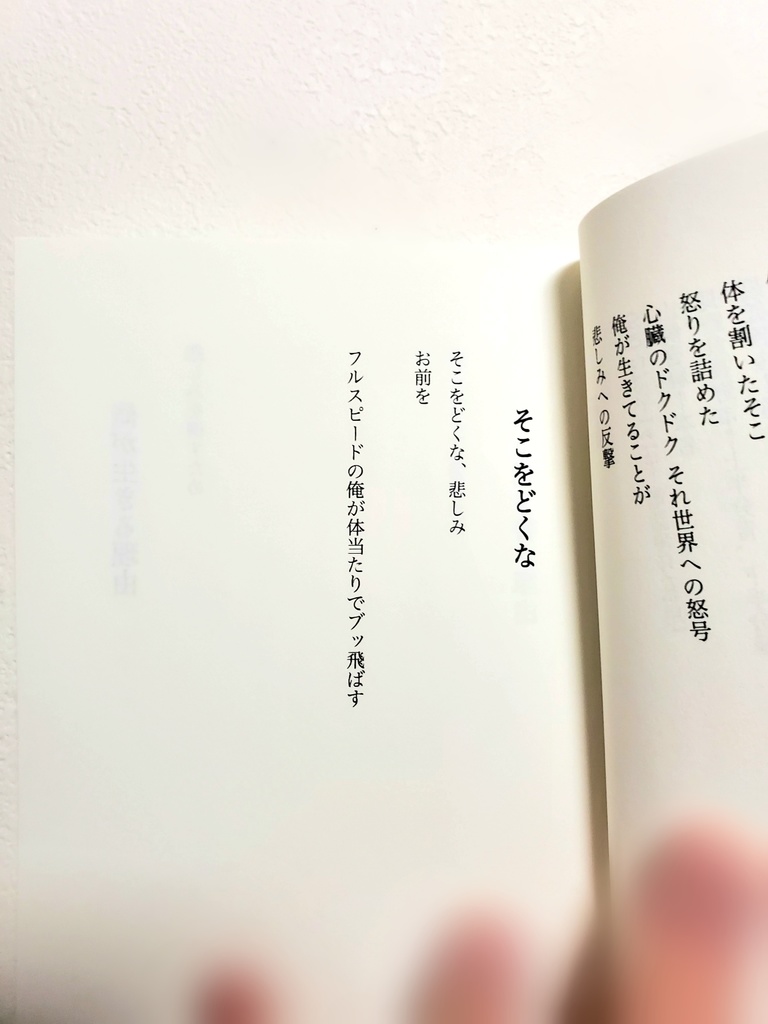 体を割いたそこ
怒りを詰めた
心臓のドクドク それ世界への怒号
俺が生きてることが
悲しみへの反撃
そこをどくな
そこをどくな、悲しみ
お前を
フルスピードの俺が体当たりでブッ飛ばす